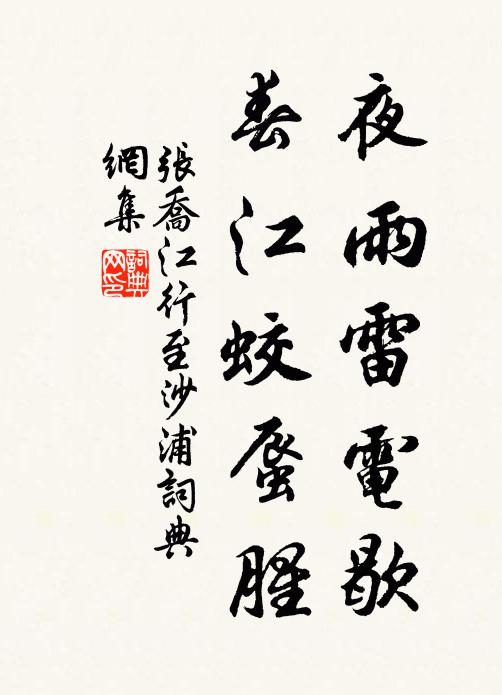 夜雨雷電歇
春江蛟蜃腥
張喬江行至沙浦詞典
網集
詞典网印